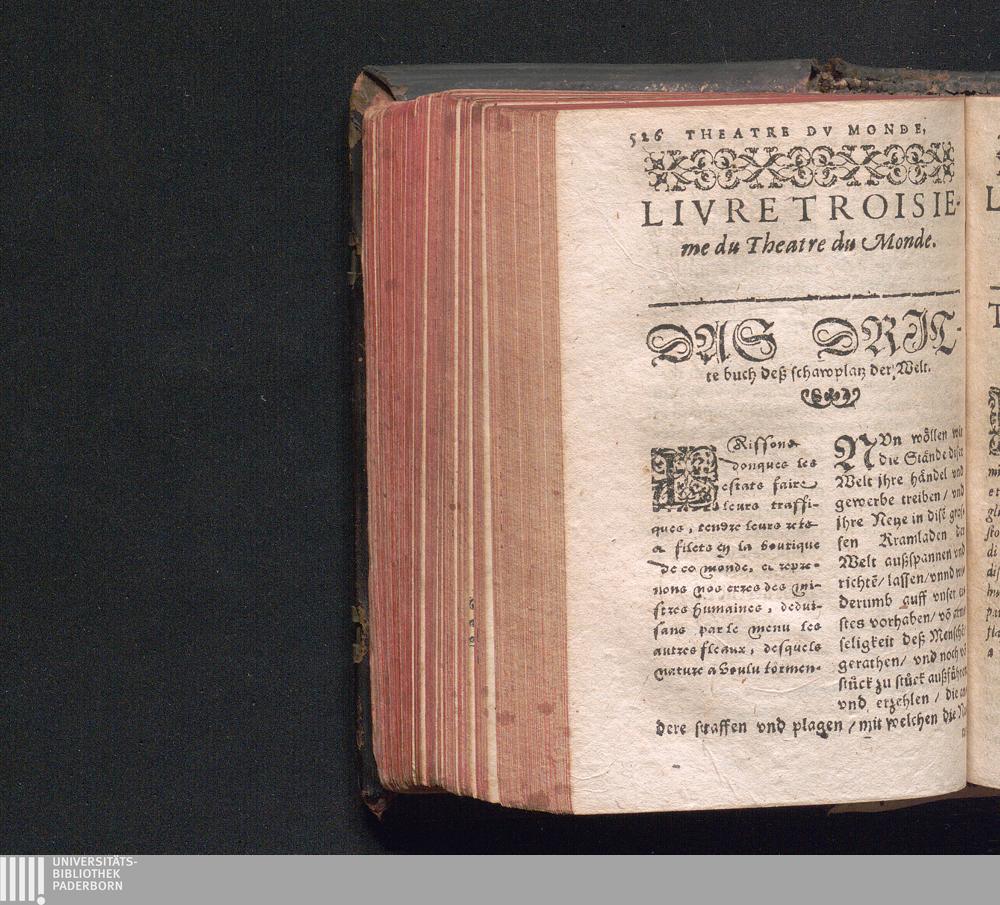 526 THEATRE DV MONDE,
LIVRE TROISIE-
me du Theatre du Monde.
DAS DRIT-
te buch deß schawplatz der Welt.
LAissons
donques les
estats faire
leurs traffi-
ques, tendre leurs rets
& filets en la boutique
de ce monde, & repre-
nons nos erres des mi-
seres humaines, dedui-
sans par le menu les
autres fleaux, desquels
nature a voulu tormen-
NVn wöllen wir
die Stände diser
Welt jhre händel vnd
gewerbe treiben / vnd
jhre Netze in disẽ gros-
sen Kramladen der
Welt außspannen vnd
richtẽ / lassen / vnnd wi-
derumb auff vnser
stes vorhaben / võ
seligkeit deß Mensch
gerathen / vnd noch võ
stück zu stück außführen
vnd erzehlen / die an-
dere straffen vnd plagen / mit welchen die Na-
UNIVERSITÄTS-
BIBLIOTHEK
PADERBORN